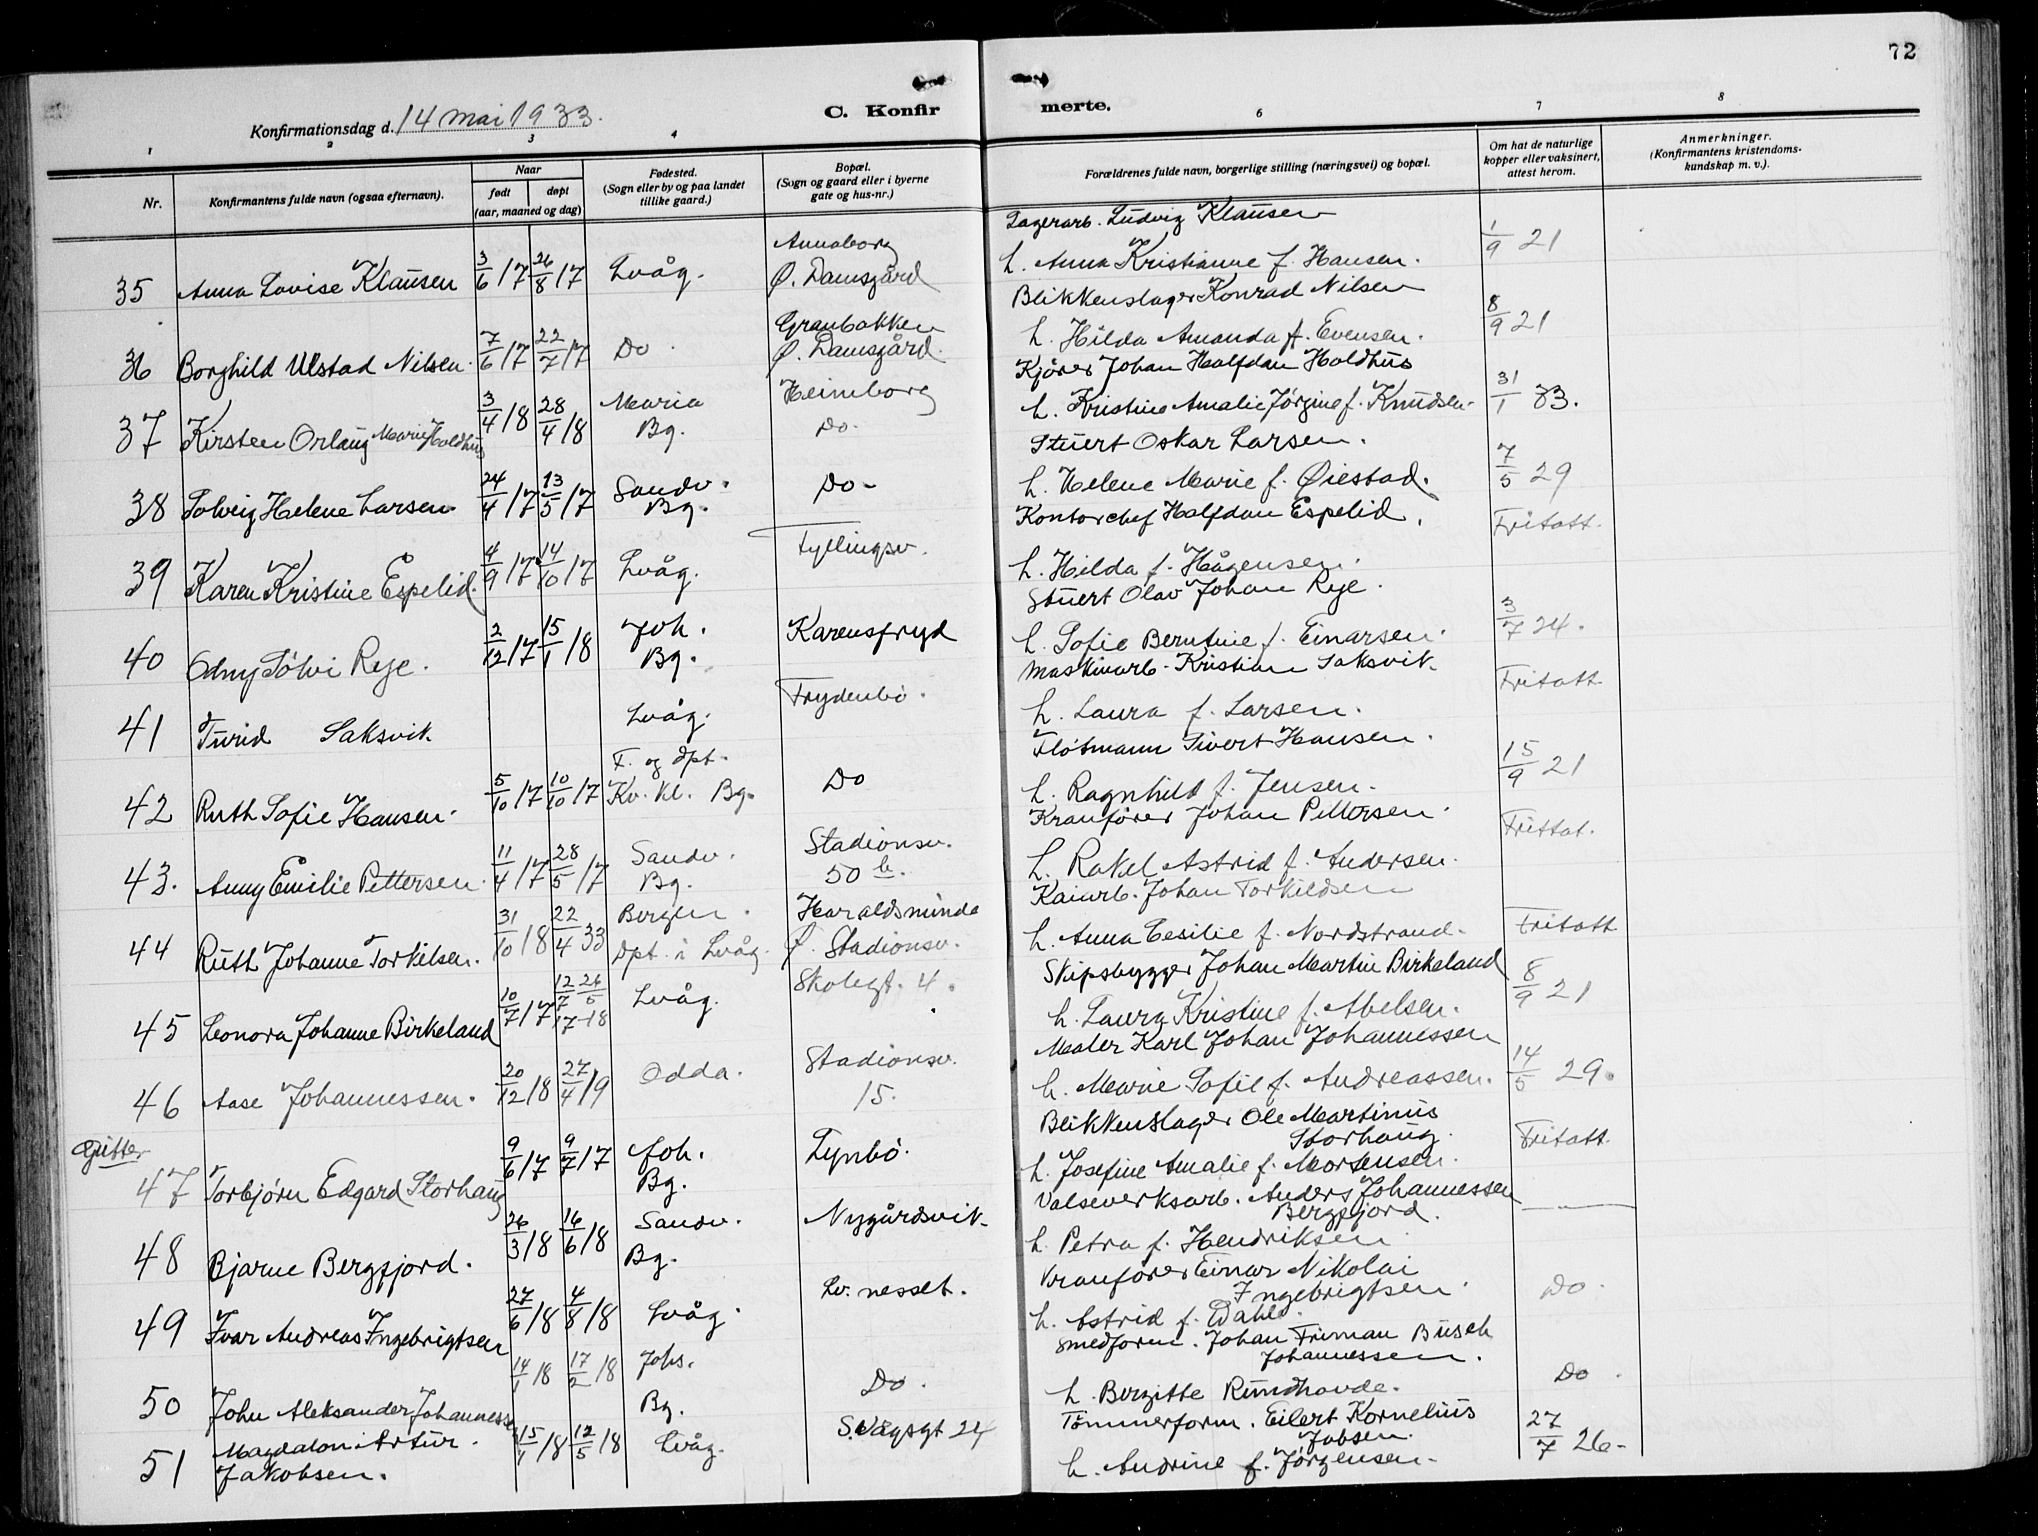 72
Konfirmationsdag d. 14 mai 1933.
C. Konfirmerte.
1 2 3 4 6 7 8
Nr.
Konfirmantens fulde navn (ogsaa efternavn).
Naar
født
døpt
(aar, maaned og dag)
Fødested.
(Sogn eller by og paa landet
tillike gaard.)
Bopæl.
(Sogn og gaard eller i byerne
gate og hus-nr.)
Forældrenes fulde navn, borgerlige stilling (næringsvei) og bopæl.
Om hat de naturlige
kopper eller vaksinert,
attest herom.
Anmerkninger.
(Konfirmantens kristendoms-
kundskap m. v.).
35 Anna Lovise Klausen 3/6 17 26/8 17 Lvåg. Annaborg Ø. Damsgård Lagerarb. Ludvig Klausen 1/9 21
h. Anna Kristianne f. Hansen.
36 Borghild Ulstad Nilsen. 7/6 17 22/7 17 Do. Granbakken Ø. Damsgård. Blikkenslager Konrad Nilsen 8/9 21
h. Hilda Amanda f. Evensen.
37 Kirsten Orlaug Marie Holdhus 3/4 18 28/4 18 Maria Bg. Heimborg Do. Kjører Johan Halfdan Holdhus 31/1 33.
h. Kristine Amalie Jørgine f. Knudsen.
38 Solveig Helene Larsen. 24/4 17 13/5 17 Sandv. Bg. Do - Stuert Oskar Larsen. 7/5 29
h. Helene Marie f. Øiestad.
39 Karen Kristine Espelid. 4/9 17 14/10 17 Lvåg. Fyllingsv. Kontorchef Halfdan Espelid. Fritatt.
h. Hilda f. Hågensen.
40 Odny Sólvi Rye. 2/12 17 15/1 18 Joh. Bg. Karensfryd Stuert Olav Johan Rye. 3/7 24.
h. Sofie Berntine f. Einarsen.
41 Turid Saksvik Lvåg. Frydenbö. Maskinarb. Kristian Saksvik. Fritatt
h. Laura f. Larsen.
42 Ruth Sofie Hansen. 5/10 17 10/10 17 F. og dpt. Kv. kl. Bg. Do Fløtmann Sivert Hansen. 15/9 21
h. Ragnhild f. Jensen.
43. Anny Emilie Pettersen. 11/4 17 28/5 17 Sandv. Bg. Stadionsv. 50 b. Kranfører Johan Pettersen. Frittat.
h. Rakel Astrid f. Andersen.
44 Ruth Johanne Torkilsen. 31/10 18 22/4 33 Bergen. Dpt. i Lvåg. Haraldsminde Ø. Stadionsv. Kaiarb. Johan Torkildsen Fritatt
h. Anna Cesilie f. Nordstrand.
45 Leonora Johanne Birkeland 10/7 17 12/7 26/5 17-18 Lvåg. Skolegt. 4. Skipsbygger Johan Martin Birkeland 8/9 21
h. Laura Kristine f. Abelsen.
46 Aase Johannessen. 20/12 18 27/4 19 Odda. Stadionsv. 15. Maler Karl Johan Johannessen 14/5 29.
h. Marie Sofie f. Andreassen.
Gutter
47 Torbjörn Edgard Storhaug 9/6 17 9/7 17 Joh. Bg. Lynbö. Blikkenslager Ole Martinus Storhaug. Fritatt.
h. Josefine Amalie f. Mortensen.
48 Bjarne Bergfjord. 26/3 18 16/6 18 Sandv. Bg. Nygårdsvik. Valseverksarb. Anders Johannessen Bergfjord. —
h. Petra f. Hendriksen
49 Ivar Andreas Ingebrigtsen 27/6 18 4/8 18 Lvåg. Lv. nesset. Kranfører Einar Nikolai Ingebrigtsen. Do.
h. Astrid f. Dahle.
50 John Aleksander Johannessen 14/1 18 17/2 18 Johs. Bg. Do. Smedform. Johan Friman Busch Johannessen. Do.
h. Bergitte Rundhovde.
51 Magdalon Artur Jakobsen. 15/1 18 12/5 18 Lvåg. S. Vågsgt 24 Tömmerform. Eilert Kornelius Jobsen. 27/7 26-
h. Andrine f. Jørgensen.